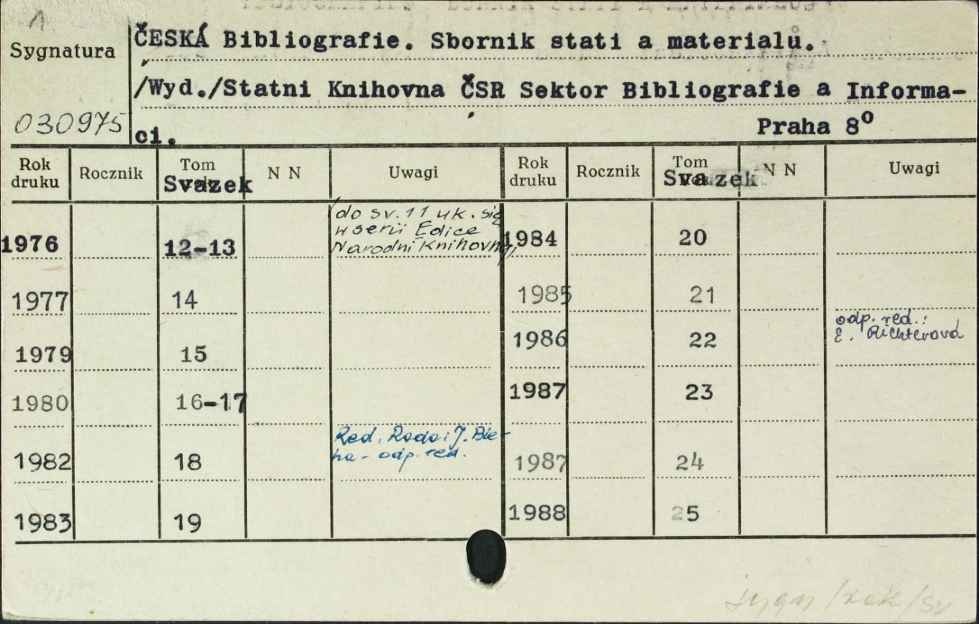 1
Sygnatura
ČESKÁ Bibliografie. Sbornik stati a materialu.
/Wyd./Statni Knihovna ČSR Sektor Bibliografie a Informa-
030975
ci.
Praha 8⁰
Rok druku Rocznik Tom Svazek N N Uwagi Rok druku Rocznik Tom Svazek N N Uwagi
1976 12-13 do sv. 11 uk. się
w serii Edice
Narodni Knihovny
1984 20
1977 14
1985 21
1979 15
1986 22 odp. red.:
E. Richterová
1980 16-17
1987 23
1982 18 Red.
odp. red.
1987 24
1983 19
1988 25